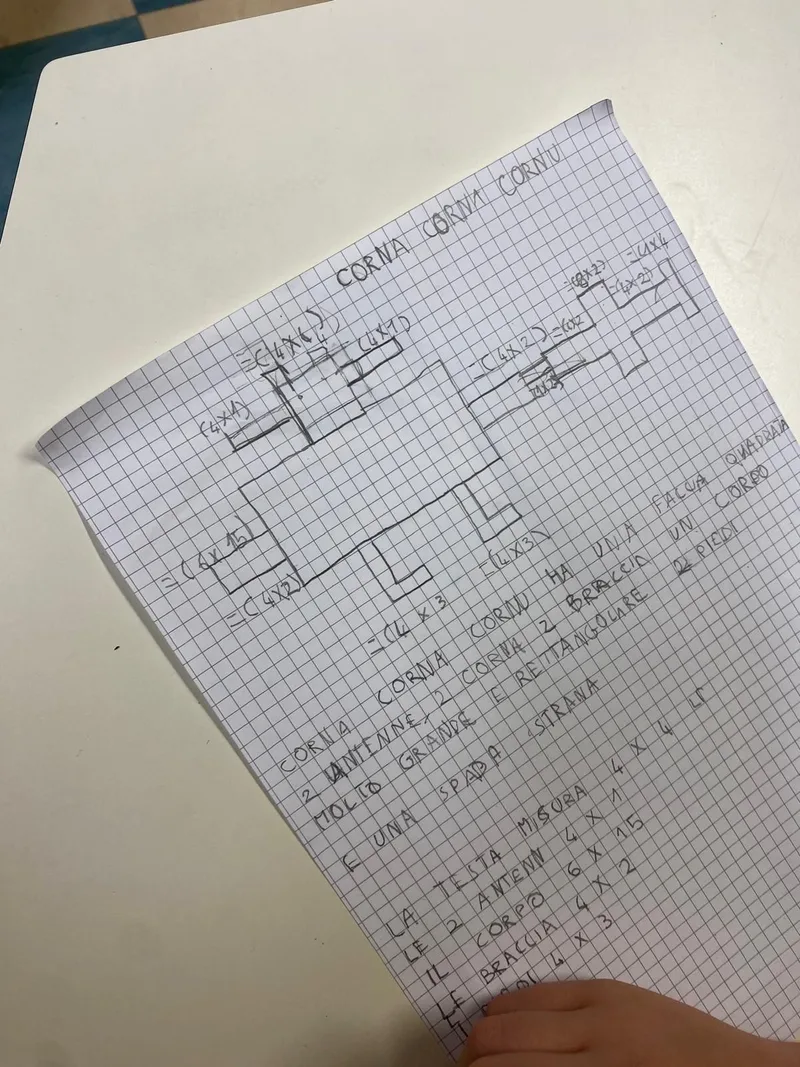 CORNA CORNA CORNU
=(4X4)
(4X1)
(4X1)
=(4X2)
=(8X2)
=(4X2)
=(1X4
=(4X2)
=(4X3)
=(4X3
CORNA CORNA CORNU HA UNA FACUA QUADRATA
2 ANTENNE, 2 CORNA 2 BRACCIA UN CORPO
MOLTO GRANDE E RETTANGOLARE 2 PIEDI
E UNA SPADA STRANA
LA TESTA MISURA 4 X 4
LE 2 ANTENN 4 X 1
IL CORPO 6 X 15
LE BRACCIA 4 X 2
4 X 3